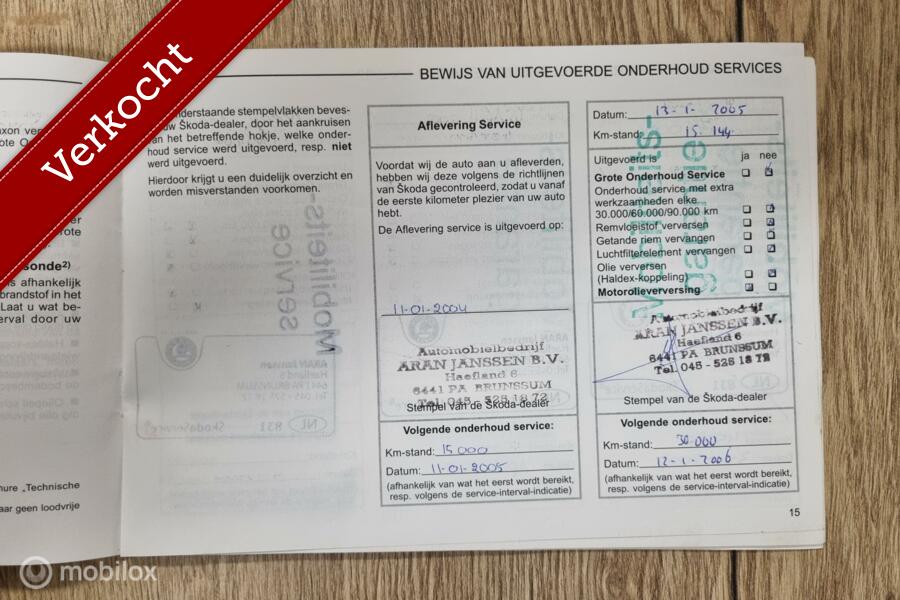 Verkocht
BEWIJS VAN UITGEVOERDE ONDERHOUD SERVICES
derstaande stempelvlakken beves-
uw Škoda-dealer, door het aankruisen
van het betreffende hokje, welke onder-
houd service werd uitgevoerd, resp. niet
werd uitgevoerd.
Hierdoor krijgt u een duidelijk overzicht en
worden misverstanden voorkomen.
sonde2)
is afhankelijk
brandstof in het
Laat u wat be-
erval door uw
hure „Technische
aar geen loodvrije
service
Mobiliteits-
Aflevering Service
Voordat wij de auto aan u afleverden,
hebben wij deze volgens de richtlijnen
van Škoda gecontroleerd, zodat u vanaf
de eerste kilometer plezier van uw auto
hebt.
De Aflevering service is uitgevoerd op:
11-01-2004
Automobielbedrijf
ARAN JANSSEN B.V.
Haefland 6
6441 PA BRUNSSUM
Tel. 045 - 525 18 72
Stempel van de Škoda-dealer
Volgende onderhoud service:
Km-stand: 15000
Datum: 11-01-2005
(afhankelijk van wat het eerst wordt bereikt,
resp. volgens de service-interval-indicatie)
Datum: 13-1-2005
Km-stand: 15.144
Uitgevoerd is ja nee
Grote Onderhoud Service
Onderhoud service met extra
werkzaamheden elke
30.000/60.000/90.000 km
Remvloeistof verversen
Getande riem vervangen
Luchtfilterelement vervangen
Olie verversen
(Haldex-koppeling)
Motorolieverversing
Automobielbedrijf
ARAN JANSSEN B.V.
Haefland 6
6441 PA BRUNSSUM
Tel. 045 - 525 18 72
Stempel van de Škoda-dealer
Volgende onderhoud service:
Km-stand: 30.000
Datum: 12-1-2006
(afhankelijk van wat het eerst wordt bereikt,
resp. volgens de service-interval-indicatie)
15
mobilox